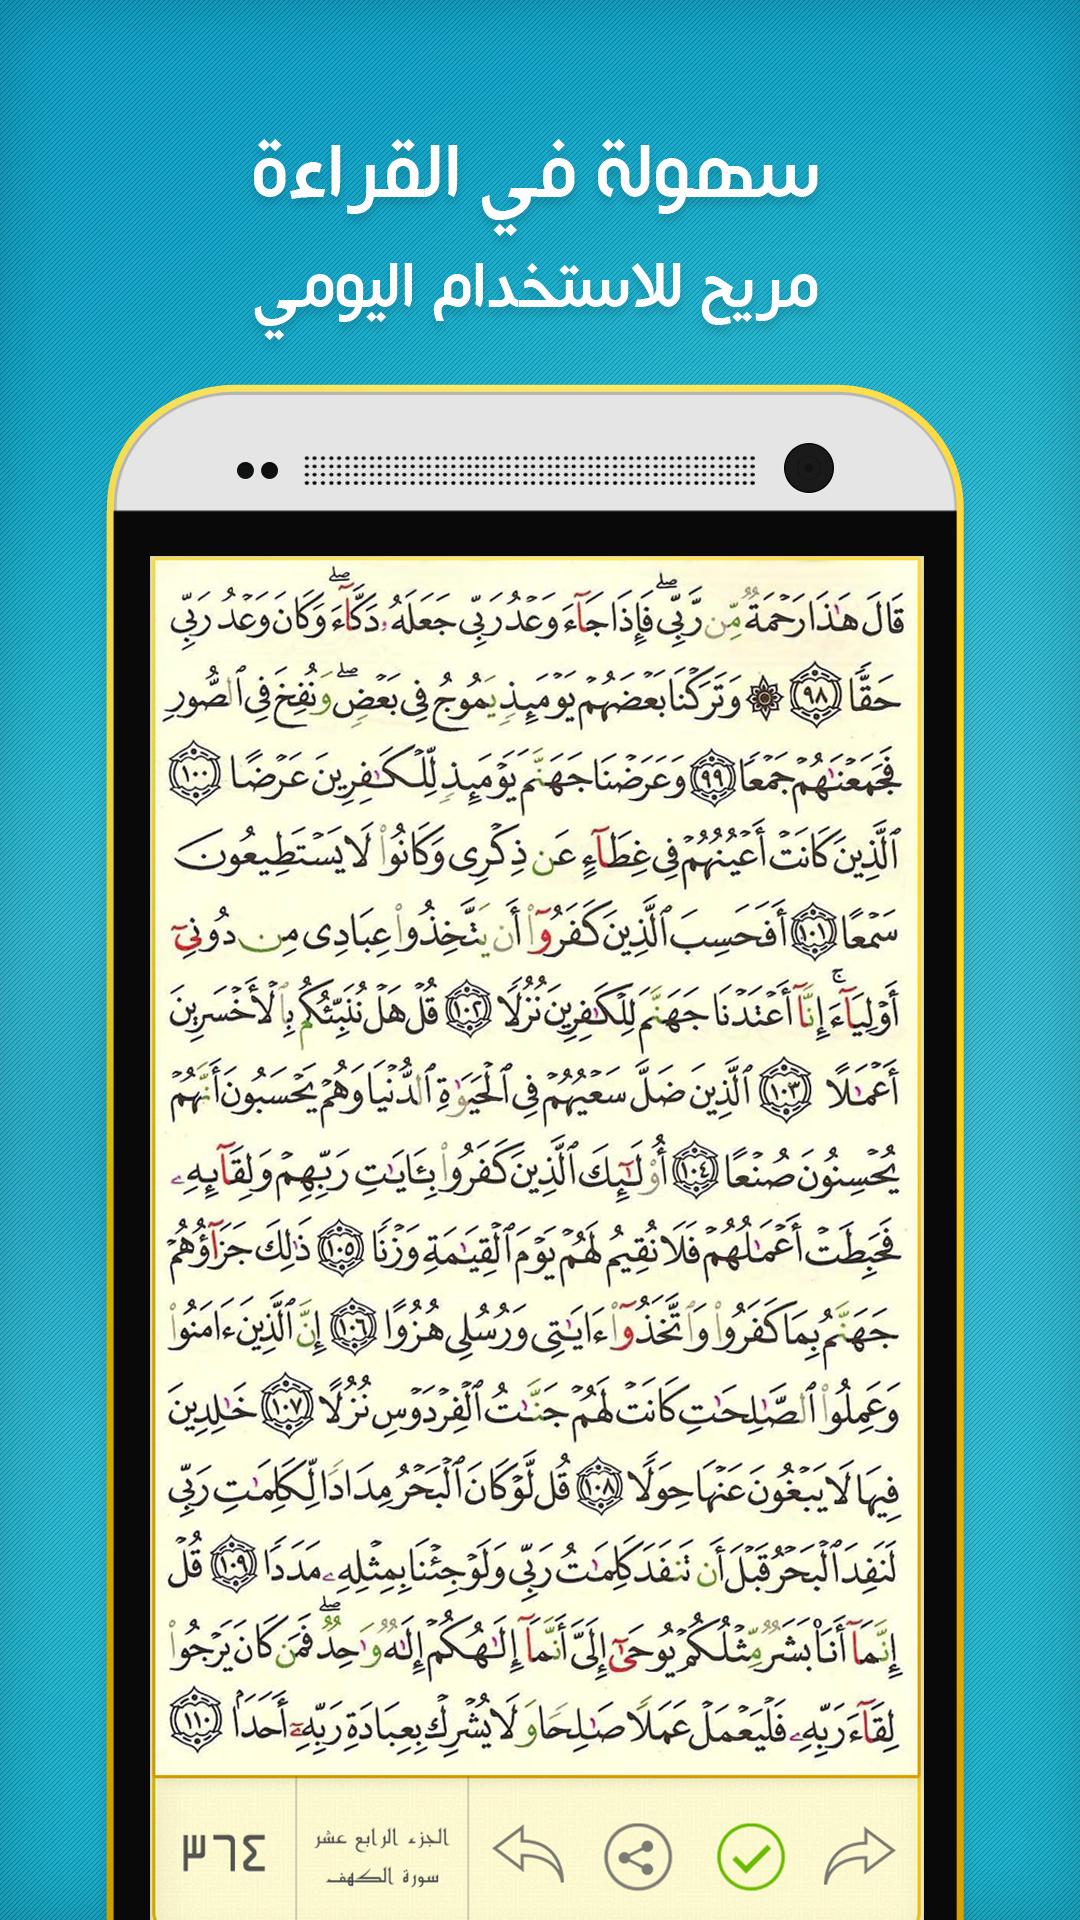 سهولة في القراءة
مريح للاستخدام اليومي
قَالَ هَٰذَا رَحْمَةٌ مِّن رَّبِّي ۖ فَإِذَا جَآءَ وَعْدُ رَبِّي جَعَلَهُۥ دَكَّآءَ ۖ وَكَانَ وَعْدُ رَبِّي
حَقًّا ٩٨ ۞ وَتَرَكْنَا بَعْضَهُمْ يَوْمَئِذٍ يَمُوجُ فِي بَعْضٍ ۖ وَنُفِخَ فِي ٱلصُّورِ
فَجَمَعْنَٰهُمْ جَمْعًا ٩٩ وَعَرَضْنَا جَهَنَّمَ يَوْمَئِذٍ لِّلْكَٰفِرِينَ عَرْضًا ١٠٠
ٱلَّذِينَ كَانَتْ أَعْيُنُهُمْ فِي غِطَآءٍ عَن ذِكْرِي وَكَانُوا۟ لَا يَسْتَطِيعُونَ
سَمْعًا ١٠١ أَفَحَسِبَ ٱلَّذِينَ كَفَرُوٓا۟ أَن يَتَّخِذُوا۟ عِبَادِي مِن دُونِيٓ
أَوْلِيَآءَ ۚ إِنَّآ أَعْتَدْنَا جَهَنَّمَ لِلْكَٰفِرِينَ نُزُلًا ١٠٢ قُلْ هَلْ نُنَبِّئُكُم بِٱلْأَخْسَرِينَ
أَعْمَٰلًا ١٠٣ ٱلَّذِينَ ضَلَّ سَعْيُهُمْ فِي ٱلْحَيَوٰةِ ٱلدُّنْيَا وَهُمْ يَحْسَبُونَ أَنَّهُمْ
يُحْسِنُونَ صُنْعًا ١٠٤ أُو۟لَٰٓئِكَ ٱلَّذِينَ كَفَرُوا۟ بِـَٔايَٰتِ رَبِّهِمْ وَلِقَآئِهِۦ
فَحَبِطَتْ أَعْمَٰلُهُمْ فَلَا نُقِيمُ لَهُمْ يَوْمَ ٱلْقِيَٰمَةِ وَزْنًا ١٠٥ ذَٰلِكَ جَزَآؤُهُمْ
جَهَنَّمُ بِمَا كَفَرُوا۟ وَٱتَّخَذُوٓا۟ ءَايَٰتِي وَرُسُلِي هُزُوًا ١٠٦ إِنَّ ٱلَّذِينَ ءَامَنُوا۟
وَعَمِلُوا۟ ٱلصَّٰلِحَٰتِ كَانَتْ لَهُمْ جَنَّٰتُ ٱلْفِرْدَوْسِ نُزُلًا ١٠٧ خَٰلِدِينَ
فِيهَا لَا يَبْغُونَ عَنْهَا حِوَلًا ١٠٨ قُل لَّوْ كَانَ ٱلْبَحْرُ مِدَادًا لِّكَلِمَٰتِ رَبِّي
لَنَفِدَ ٱلْبَحْرُ قَبْلَ أَن تَنفَدَ كَلِمَٰتُ رَبِّي وَلَوْ جِئْنَا بِمِثْلِهِۦ مَدَدًا ١٠٩ قُلْ
إِنَّمَآ أَنَا۠ بَشَرٌ مِّثْلُكُمْ يُوحَىٰٓ إِلَيَّ أَنَّمَآ إِلَٰهُكُمْ إِلَٰهٌ وَٰحِدٌ ۖ فَمَن كَانَ يَرْجُوا۟
لِقَآءَ رَبِّهِۦ فَلْيَعْمَلْ عَمَلًا صَٰلِحًا وَلَا يُشْرِكْ بِعِبَادَةِ رَبِّهِۦٓ أَحَدًۢا ١١٠
الجزء الرابع عشر
٣٦٤
سورة الكهف